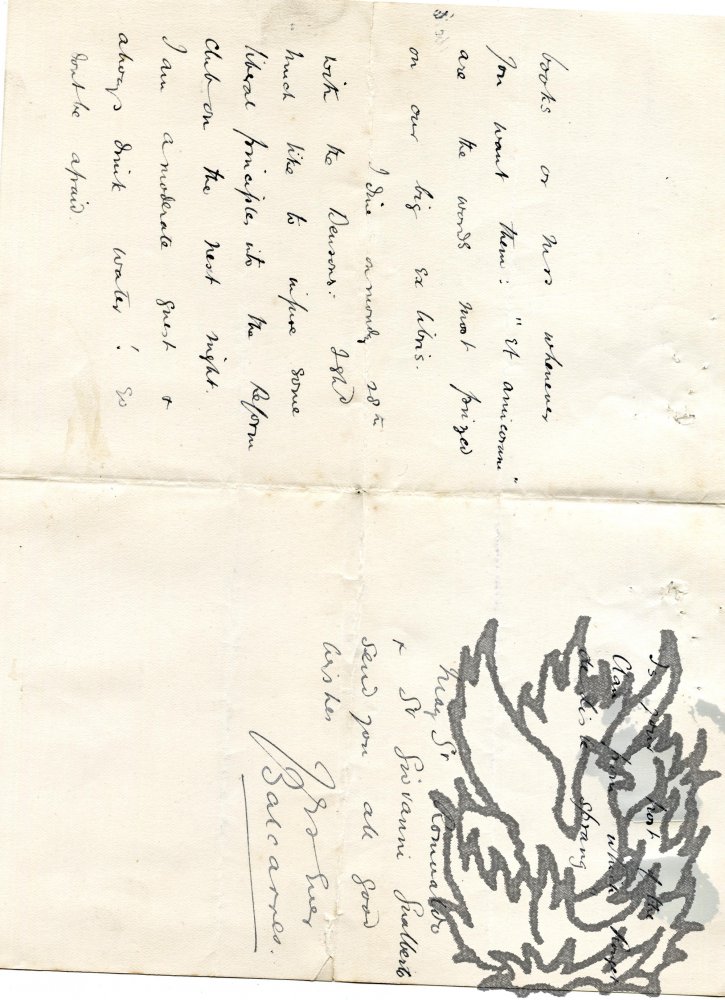 books or Mss whenever
you want them: "et amicorum"
are the words most prized
on our big Ex libris.
I dine on monday 28th
with the Densons. I shd
much like to infuse some
liberal principles into the Reform
Club on the next night.
I am a moderate guest +
always drink water! So
dont be afraid.
Is your friend of the
Clan from which
de Lisle sprang
May St Romualdo
+ St Giovanni Gualberto
send you all good
wishes
Yrs Ever
Balcarres.